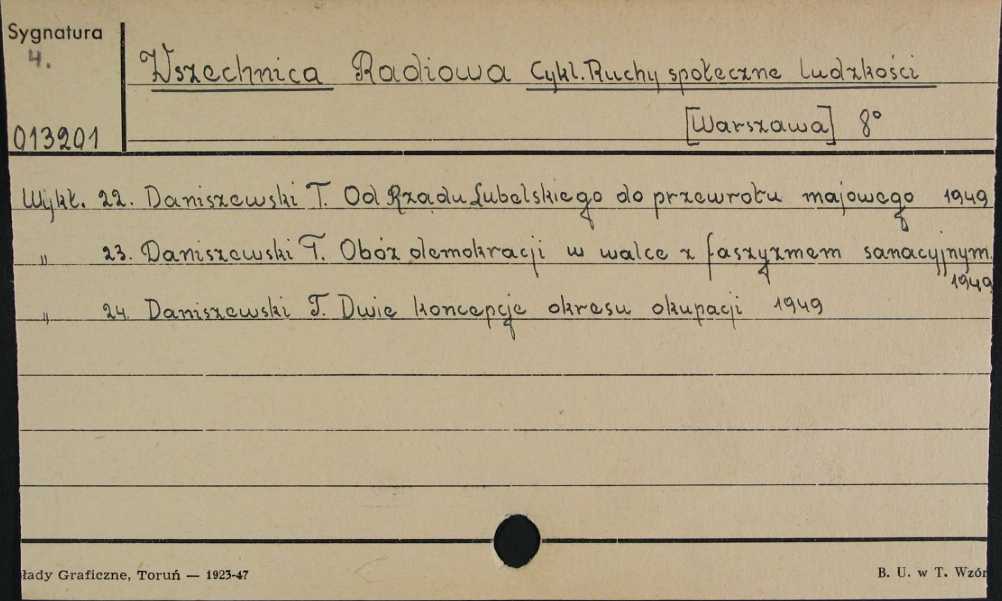 Sygnatura
4.
013201
Wszechnica Radiowa Cykl. Ruchy społeczne ludzkości
[Warszawa] 8°
Wykł. 22. Daniszewski T. Od Rządu Lubelskiego do przewrotu majowego 1949
" 23. Daniszewski T. Obóz demokracji w walce z faszyzmem sanacyjnym.
1949
" 24. Daniszewski T. Dwie koncepcje okresu okupacji 1949
łady Graficzne, Toruń — 1923-47
B. U. w T. Wzór